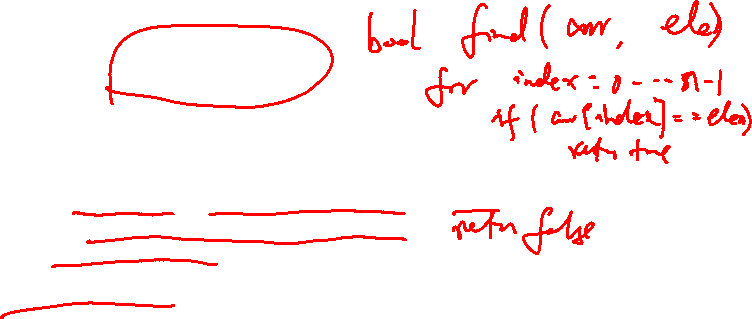 bool find(arr, ele)
for index = 0 --- n-1
if (arr[index] == ele)
return true
return false